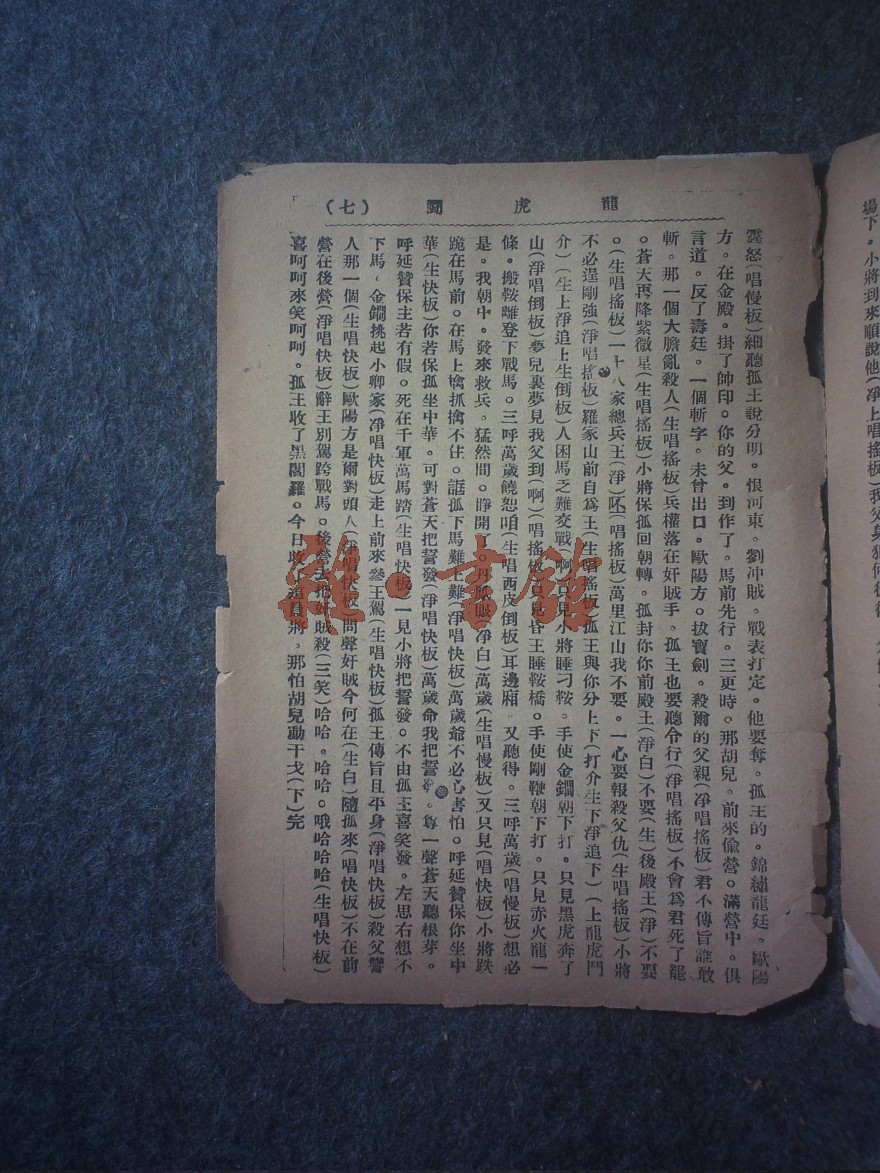 龍虎鬭（七）
霆怒(唱慢板)細聽孤王說分明。恨河東。劉冲賊。戰表打定。他要奪。孤王的。錦繡龍廷。歐陽
方。在金殿。掛了帥印。你的父。到作了。馬前先行。三更時。那胡兒。前來偸營。滿營中。俱
言道。反了壽廷。一個斬字。未曾出口。歐陽方。拔寶劍。殺爾的父親(凈唱搖板)君不傳旨誰敢
斬。那一個大膽亂殺人(生唱搖板)兵權落在奸賊手。孤王也要聽令行(淨唱搖板)不會爲君死了罷
。蒼天再降紫微星(生唱搖板)小將保孤回朝轉。孤封你你前殿王(淨白)不要(生)後殿王(淨)不要
。(生唱搖板)一十八家總兵王(淨)呸(唱搖板)萬里江山我不要。一心要報殺父仇(生唱搖板)小將
不必逞剛強(淨唱搖板)羅家山前自爲王(生唱搖板)孤王與你分上下(打介生下淨追下)(上龍虎鬥
介)(生上淨追上生倒板)人困馬乏難交戰(啊)只見小將睡刁鞍。手使金鐧朝下打。只見黑虎奔了
山(淨唱倒板)夢兒裏夢見我父到(啊)(唱搖板)只見昏王睡鞍橋。手使剛鞭朝下打。只見赤火龍一
條。搬鞍離登下戰馬。三呼萬歲饒恕咱(生唱西皮倒板)耳邊廂 又聽得。三呼萬歲(唱慢板)想必
是。我朝中。發來救兵。猛然間。睜開了。丹鳳眼(凈白)萬歲(生唱慢板)又只見(唱快板)小將跌
跪在馬前。在馬上擒抓擒不住。誆孤下馬難上難(淨唱快板)萬歲爺不必心害怕。呼延贊保你坐中
華(生快板)你若保孤坐中華。可對蒼天把誓發(淨唱快板)萬歲命我把誓 。尊一聲蒼天聽根芽。
呼延贊保主若有假。死在千軍萬馬踏(生唱快板)一見小將把誓發。不由孤王喜笑發。左思右想不
下馬。金鐧挑起小卿家(凈唱快板)走上前來叅王駕(生唱快板)孤王傳旨且平身(淨唱快板)殺父讐
人那一個(生唱快板)歐陽方是爾對頭人(淨唱快板)問聲奸賊今何在(生白)隨孤來(唱快板)不在前
營在後營(淨唱快板)辭王別駕跨戰馬。後營去把奸賊殺(三笑)哈哈。哈哈。哦哈哈哈(生唱快板)
喜呵呵來笑呵呵。孤王收了黑閻羅。今日收了這員將。那怕胡兒動干戈(下)完
雅·書館
場下。小將到來順說他(凈上唱搖板)我父